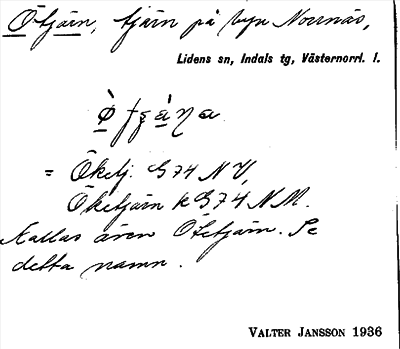 Ötjärn, tjärn på byn Norrnäs,
Lidens sn, Indals tg, Västernorrl. l.
= Öketj. G74 NV,
Öketjärn k G74 NM.
Kallas även Öketjärn. Se
detta namn.
VALTER JANSSON 1936